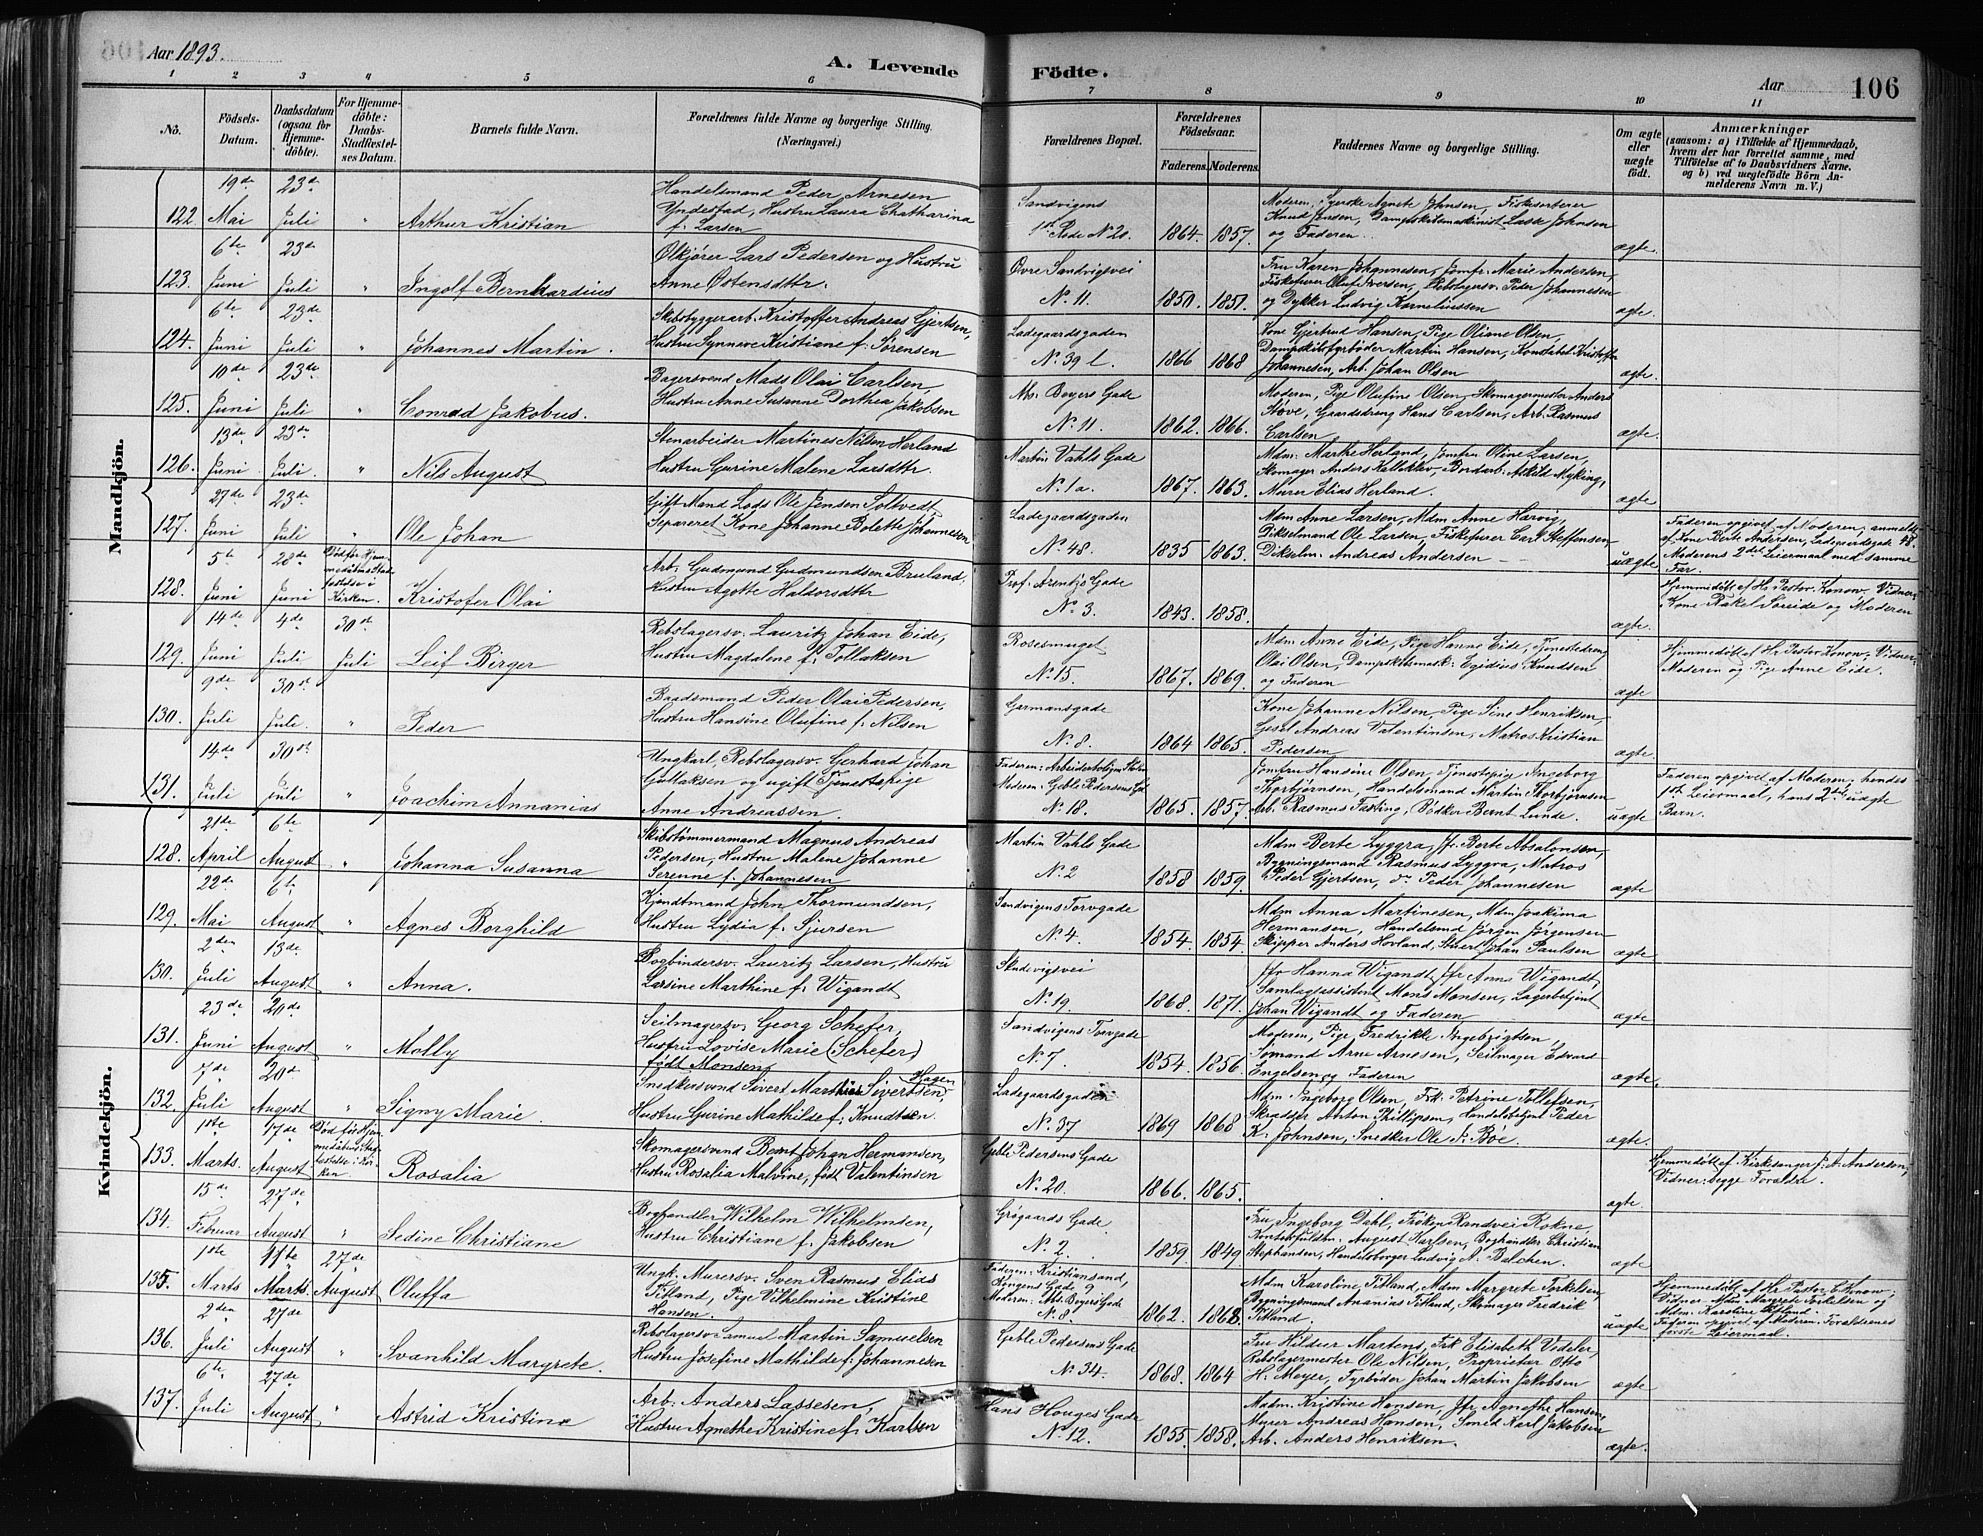 Aar 1893
A. Levende Födte.
Aar
106
1 2 3 4 5 6 7 8 9 10 11
No.
Födsels-Datum.
Daabsdatum (ogsaa for Hjemme-döbte).
For Hjemme-döbte: Daabs-Stadfæstel-ses Datum.
Barnets fulde Navn.
Forældrenes fulde Navne og borgerlige Stilling.
(Næringsvei.)
Forældrenes Bopæl.
Forældrenes Födselsaar.
Faderens. Moderens.
Faddernes Navne og borgerlige Stilling.
Om ægte eller uægte födt.
Anmærkninger
(saasom: a) i Tilfælde af Hjemmedaab,
hvem der har forrettet samme, med
Tilföielse af to Daabsvidners Navne.
og b) ved uægtefödte Börn An-
melderens Navn m. V.)
Mandkjön.
122. 19de Mai 23de Juli " Arthur Kristian
Handelsmand Peder Arnesen
Yndestad, Hustru Laura Chatharina
f. Larsen
Sandvigens
1ste Rode No 20. 1864. 1857.
Moderen, Syerske Agnete Johnsen, Fiskesorterer
Knud Jensen, Dampskibsmaskinist Lasse Johnsen
og Faderen
ægte.
123. 6te Juni 23de Juli " Ingolf Bernhardius
Ølkjører Lars Pedersen og Hustru
Anne Østensdttr.
Øvre Sandvigsvei
No. 11. 1850. 1851.
Fru Karen Johannesen, Jomfr. Marie Andersen,
Fiskefører Oluf Iversen, Rebslagersv. Peder Johannesen
og Dykker Ludvig Korneliussen
ægte.
124. 6te Juni 23de Juli " Johannes Martin.
Skibsbyggerarb. Kristoffer Andreas Gjertsen,
Hustru Synneve Kristiane f. Sørensen
Ladegaardsgaden
No. 39 l. 1866 1868
Kone Gjertrud Hansen, Pige Oliane Olsen,
Dampskibsfyrbøder Martin Hansen, Konstabel Kristoffer
Johannesen, Arb. Johan Olsen
ægte.
125. 10de Juni 23de Juli " Conrad Jakobus.
Bagersvend Mads Olai Carlsen,
Hustru Anne Susanne Dorthea Jakobsen
Ms. Beyers Gade
No. 11. 1862. 1866.
Moderen, Pige Olufine Olsen, Skomagermester Anders
Støve, Gaardsdreng Hans Carlsen, Arb. Rasmus
Carlsen
ægte.
126. 13de Juni 23de Juli. " Nils August
Stenarbeider Martines Nilsen Herland
Hustru Gurine Malene Larsdttr.
Martin Vahls Gade
No. 1a. 1867. 1863.
Mdm. Marthe Herland, Jomfru Oline Larsen,
Skomager Anders Kalleklev, Bordarb. Askild Myking,
Murer Elias Herland.
ægte
127. 27de Juni 23de Juli " Ole Johan
Gift Mand Lods Ole Jensen Soltvedt
Separeret Kone Johanne Bolette Johannesen
Ladegaardsgaden
No. 48. 1835 1863.
Mdm Anne Larsen, Mdm Anne Harvig,
Dikselmand Ole Larsen, Fiskefører Carl Steffensen,
Dikselm. Andreas Andersen
uægte
Faderen opgivet af Moderen, anmeldt
af Kone Berte Andersen, Ladegaardsgade 48.
Moderens 2det Leiermaal med samme
Far.
128. 5te Juni 28de Juni Død før Hjemmedaabens Stadfæstelse i Kirken. Kristofer Olai
Arb. Gudmund Gudmundsen Bruland,
Hustru Agotte Haldorsdttr
Prof. Arentzs Gade
No. 3. 1843. 1858.
ægte.
Hjemmedøbt af Hr. Pastor Konow, Vidner:
Kone Rakel Søreide og Moderen
129. 14de Juni 4de Juli 30te Juli Leif Birger
Rebslagersv. Lauritz Johan Eide,
Hustru Magdalene f. Tollaksen
Rosesmuget
No. 15. 1867. 1869.
Mdm Anne Eide, Pige Hanne Eide, Tjenestedreng
Olai Olsen, Dampskibsmask. Egidius Knudsen
og Faderen
ægte
Hjemmedøbt af Hr. Pastor Konow, Vidner:
Moderen og Pige Anne Eide.
130. 9de Juli 30te Juli. " Peder
Baadsmand Peder Olai Pedersen,
Hustru Hansine Olufine f. Nilsen
Garmansgade
No. 8. 1864 1865.
Kone Johanne Nilsen, Pige Sine Henriksen,
Gesel Andreas Valentinsen, Matros Kristian
Pedersen
ægte.
131. 14de Juli 30te Juli " Joachim Annanias
Ungkarl, Rebslagersv. Gerhard Johan
Gullaksen og ugift Tjenestepige
Anne Andreassen.
Faderen: Arbeiderboligen
Moderen: Geble Pedersens Gd.
No. 18. 1865. 1857.
Jomfru Hansine Olsen, Tjenestepige Ingeborg
Thorbjørnsen, Handelsmand Martin Thorbjørnsen
Arb. Rasmus Fasting, Bødker Bernt Lunde.
uægte
Faderen opgivet af Moderen; hendes
1ste Leiermaal, hans 2det uægte
Barn.
Kvindekjön.
128. 21de April 6te August " Johanna Susanna
Skibstømmermand Magnus Andreas
Pedersen, Hustru Malene Johanne
Serenne f. Johannesen
Martin Vahls Gade
No. 2 1858 1859.
Mdm Berte Lyggra, Jfr. Berte Absalonsen,
Bygningsmand Rasmus Lyggra, Matros
Peder Gjertsen, do Peder Johannesen
ægte
129. 22de Mai 6te August " Agnes Borghild
Kjendtmand John Thormundsen,
Hustru Lydia f. Sjursen
Sandvigens Torvgade
No. 4. 1854. 1854.
Mdm Anna Martinesen, Mdm Joakima
Hermansen, Handelsmd Jørgen Jørgensen
Skipper Anders Hovland, Stuert Johan Paulsen
ægte.
130. 2den Juli 13de August " Anna.
Bogbindersv. Lauritz Larsen, Hustru
Larsine Marthine f. Wigandt
Skudevigsvei
No. 19. 1868. 1871.
Jfr Hanna Wigandt, Jfr Anna Wigandt,
Samlagsassistent Mons Monsen, Lagerbetjent
Johan Wigandt og Faderen
ægte
131. 23de Juni 20de August " Molly
Seilmagersv. Georg Schefer,
Hustru Lovise Marie (Schefer)
født Monsen
Sandvigens Torvgade
No. 7. 1854. 1856.
Moderen, Pige Fredrikke Ingebrigtsen,
Sømand Arne Arnesen, Seilmager Edvard
Engelsen og Faderen
ægte.
132. 7de Juli 20de August " Signy Marie.
Snedkersvend Sivert Marthias Sivertsen Hagen,
Hustru Gurine Mathilde f. Knudsen.
Ladegaardsgaden
No. 37 1869 1868
Mdm. Ingeborg Olsen, Frk. Petrine Tollefsen,
Skrædder Anton Phillipsen, Handelsbetjent Peder
K. Johnsen, Snedker Ole J. Bøe.
ægte.
133. 1ste Marts. 17de August Død før Hjemmedaabens Stadfæstelse i Kirken Rosalia
Skomagersvend Bernt Johan Hermansen,
Hustru Rosalia Malvine, født Valentinsen
Geble Pedersens Gade
No. 20. 1866. 1865.
ægte
Hjemmedøbt af Kirkesanger J. A. Andersen,
Vidner: begge Forældre.
134. 15de Februar 27de August " Sedine Christiane
Boghandler Wilhelm Wilhelmsen,
Hustru Christiane f. Jakobsen
Grøgaards Gade
No. 2. 1859. 1849.
Fru Ingeborg Dahl, Frøken Randvei Rokne,
Kontorfuldm. August Karlsen, Boghandler Christian
Stephansen, Handelsborger Ludvig A. Balchen.
ægte
135. 1ste Marts 11te Marts. 27de August Oluffa
Ungk. Murersv. Sven Rasmus Elias
Titland, Pige Vilhelmine Kristine
Hansen.
Faderen: Kristiansand,
Kongens Gade 9
Moderen: Ms. Beyers Gade
No. 8. 1862. 1862.
Mdm Karoline Titland, Mdm Margrete Torkelsen,
Bygningsmand Ananias Titland, Skomager Fredrik
Titland.
uægte
Hjemmedøbt af Hr. Pastor C. Konow;
Vidner: Mdm Margrete Torkelsen og
Mdm. Karoline Titland.
Faderen opgivet af Moderen. Forældrenes
første Leiermaal.
136. 2den Juli 27de August " Svanhild Margrete.
Rebslagersv. Samuel Martin Samuelsen
Hustru Josefine Mathilde f. Johannesen
Geble Pedersens Gade
No. 34. 1868. 1864
Fru Hildur Martens, Frk Elisabeth Vedeler,
Rebslagermester Ole Nilsen, Proprietær Otto
H. Meyer, Fyrbøder Johan Martin Jakobsen
ægte
137. 6te Juli 27de August " Astrid Kristine
Arb. Anders Lassesen,
Hustru Agnethe Kristine f. Karlsen
Hans Hauges Gade
No. 12. 1855. 1858.
Madm. Kristine Hansen, Jfr. Agnethe Hansen,
Murer Andreas Hansen, Smed Karl Jakobsen
Arb. Anders Henriksen.
ægte.